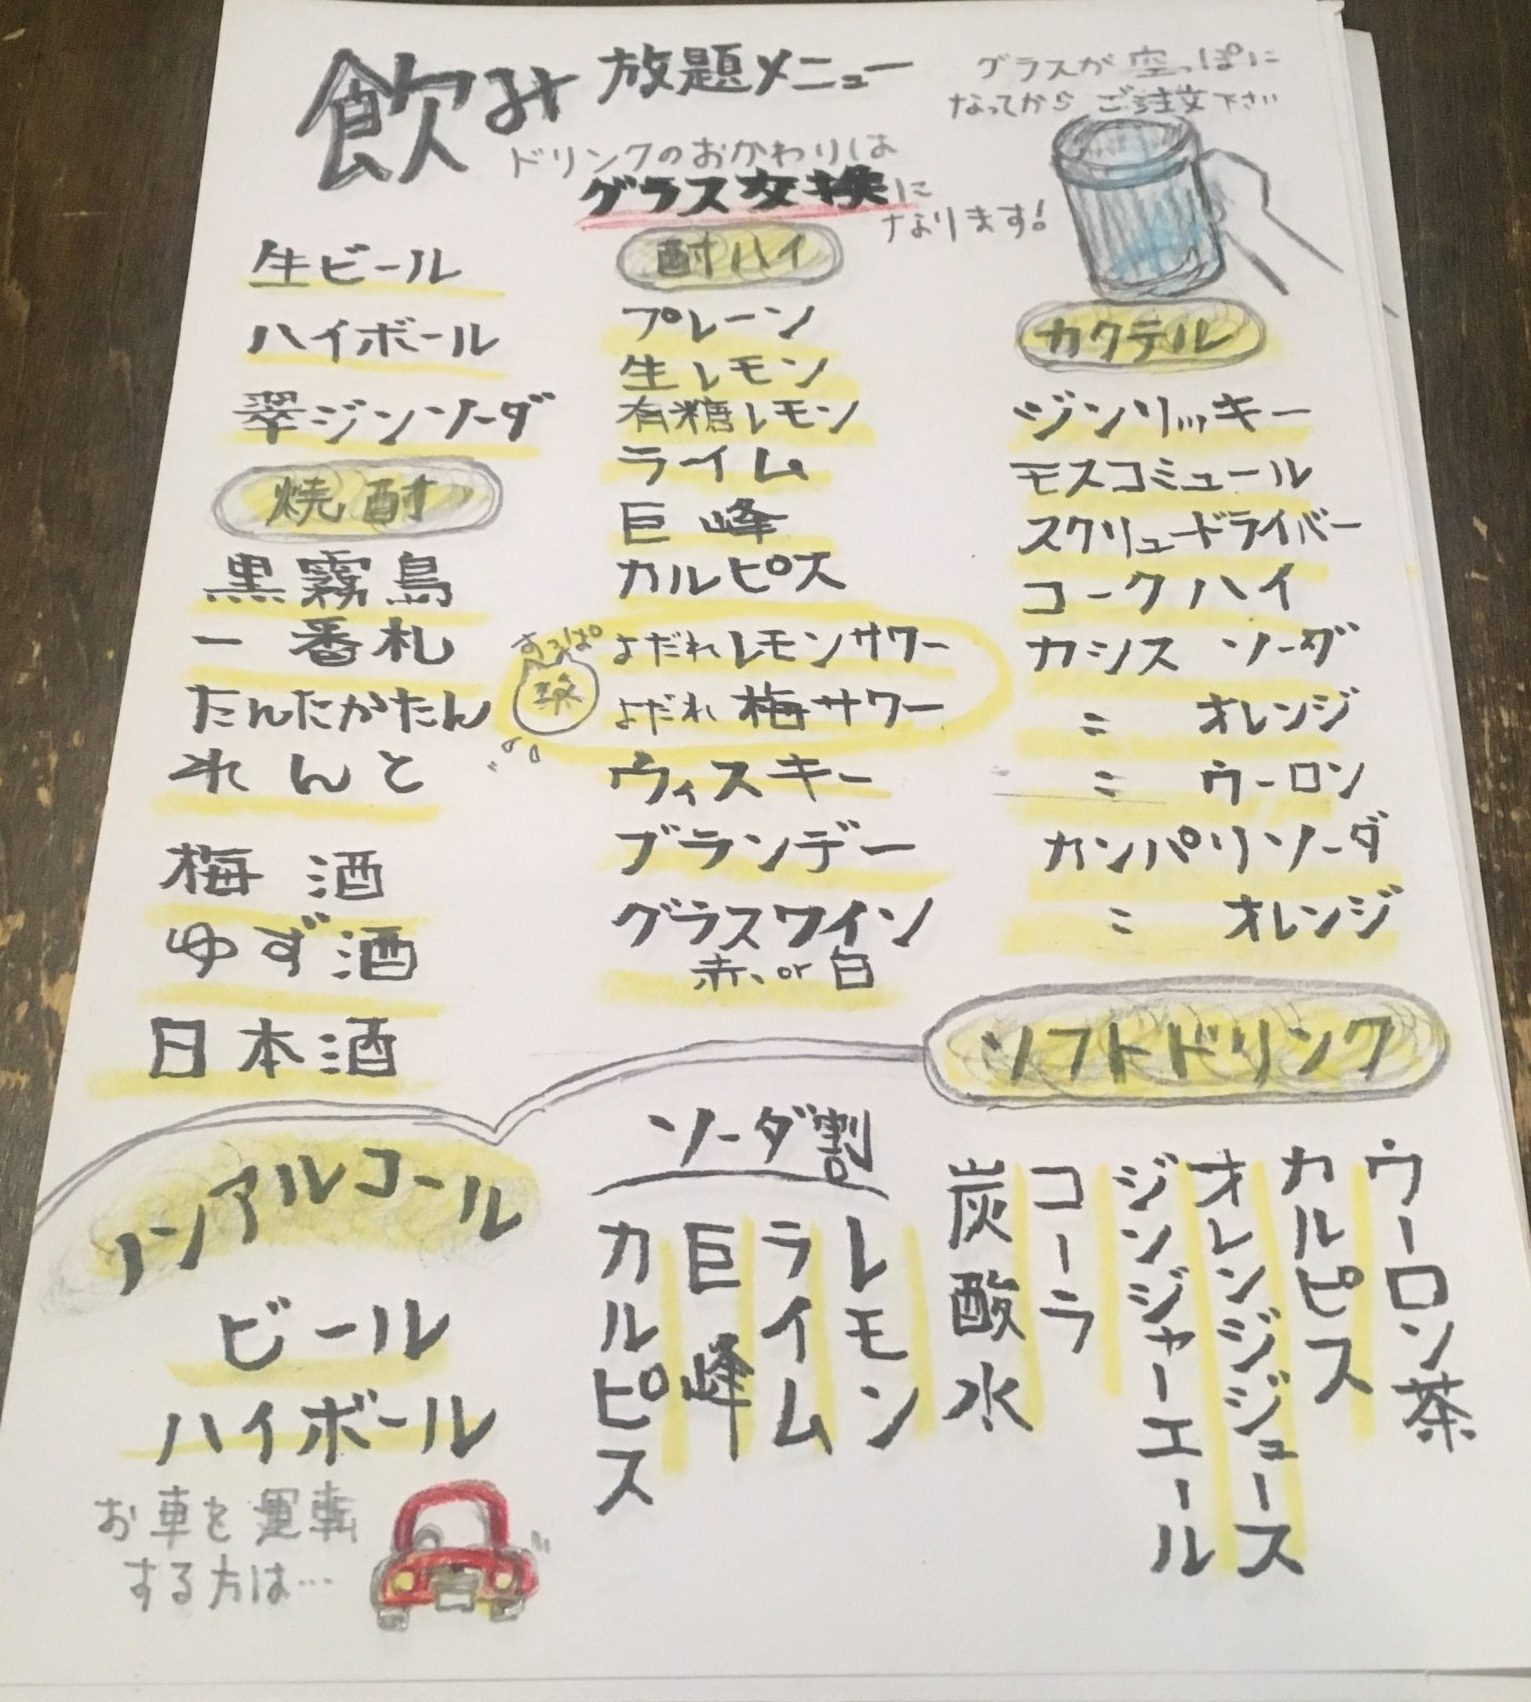 飲み放題メニュー
グラスが空っぽに
なってから ご注文下さい
ドリンクのおかわりは
グラス交換に
なります!
生ビール
ハイボール
翠ジンソーダ
焼酎
黒霧島
一番札
たんたかたん
れんと
梅酒
ゆず酒
日本酒
酎ハイ
プレーン
生レモン
有糖レモン
ライム
巨峰
カルピス
すっぱ
よだれレモンサワー
よだれ梅サワー
ウィスキー
ブランデー
グラスワイン
赤、or 白
カクテル
ジンリッキー
モスコミュール
スクリュードライバー
コークハイ
カシス ソーダ
〃 オレンジ
〃 ウーロン
カンパリソーダ
〃 オレンジ
ソフトドリンク
ウーロン茶
カルピス
オレンジジュース
ジンジャーエール
コーラ
炭酸水
ソーダ割
レモン
ライム
巨峰
カルピス
ノンアルコール
ビール
ハイボール
お車を運転
する方は…